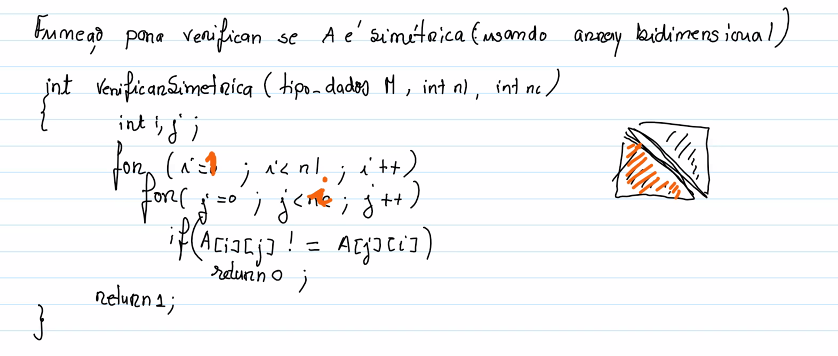 Função para verificar se A é simétrica (usando array bidimensional)
int verificarSimetrica (tipo_dados M, int nl, int nc)
{
int i, j ;
for (i=1 ; i< nl ; i++)
for( j=0 ; j<i ; j++)
if(A[i][j] != A[j][i])
return 0 ;
return 1;
}